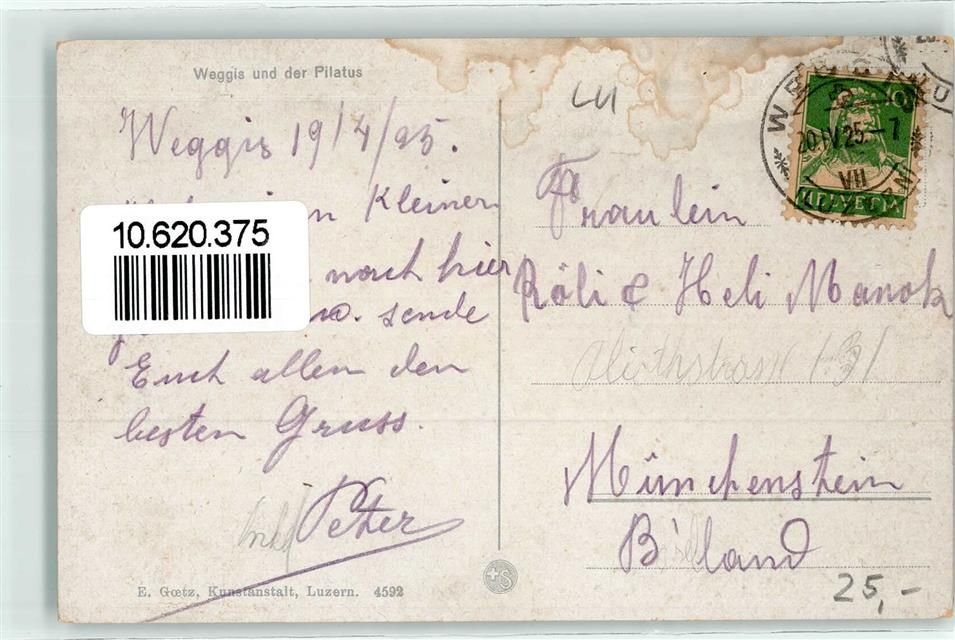 Weggis und der Pilatus
Weggis 19/4/25.
Kleinen
10.620.375
noch hier
sende
Euch allen den
besten Gruss.
Peter
E. Gœtz, Kunstanstalt, Luzern. 4592
LU
20.IV.25.-7
VII
10
HELVETIA
Fräulein
Röli & Heli Manok
Münchenstein
B'land
25,-